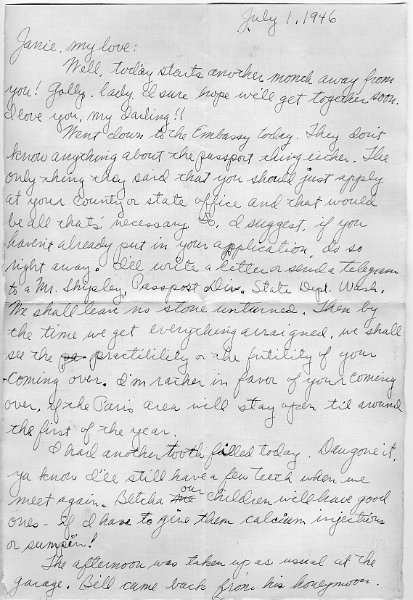 July 1, 1946
Janie, my love:
Well, today starts another month away from
you! Golly, lady I sure hope we'll get together soon.
I love you, my Darling!!
Went down to the Embassy today. They don't
know anything about the passport thing either. The
only thing they said that you should just apply
at your County or state office and that would
be all that's necessary. So, I suggest, if you
haven't already put in your application, do so
right away. I'll write a letter or send a telegram
to a Mr. Shipley, Passport Div., State Dept. Wash.
We shall leave no stone unturned. Then by
the time we get everything arraigned, we shall
see the practibility or the futility of your
coming over. I'm rather in favor of your coming
over, if the Paris area will stay open 'til around
the first of the year.
I had another tooth filled today. Daw gone it,
ya know I'll still have a few teeth when we
meet again. Betcha our Children will have good
ones - If I have to give them calcium injections
or sumpin!
The afternoon was taken up as usual at the
garage. Bill came back from his honeymoon.